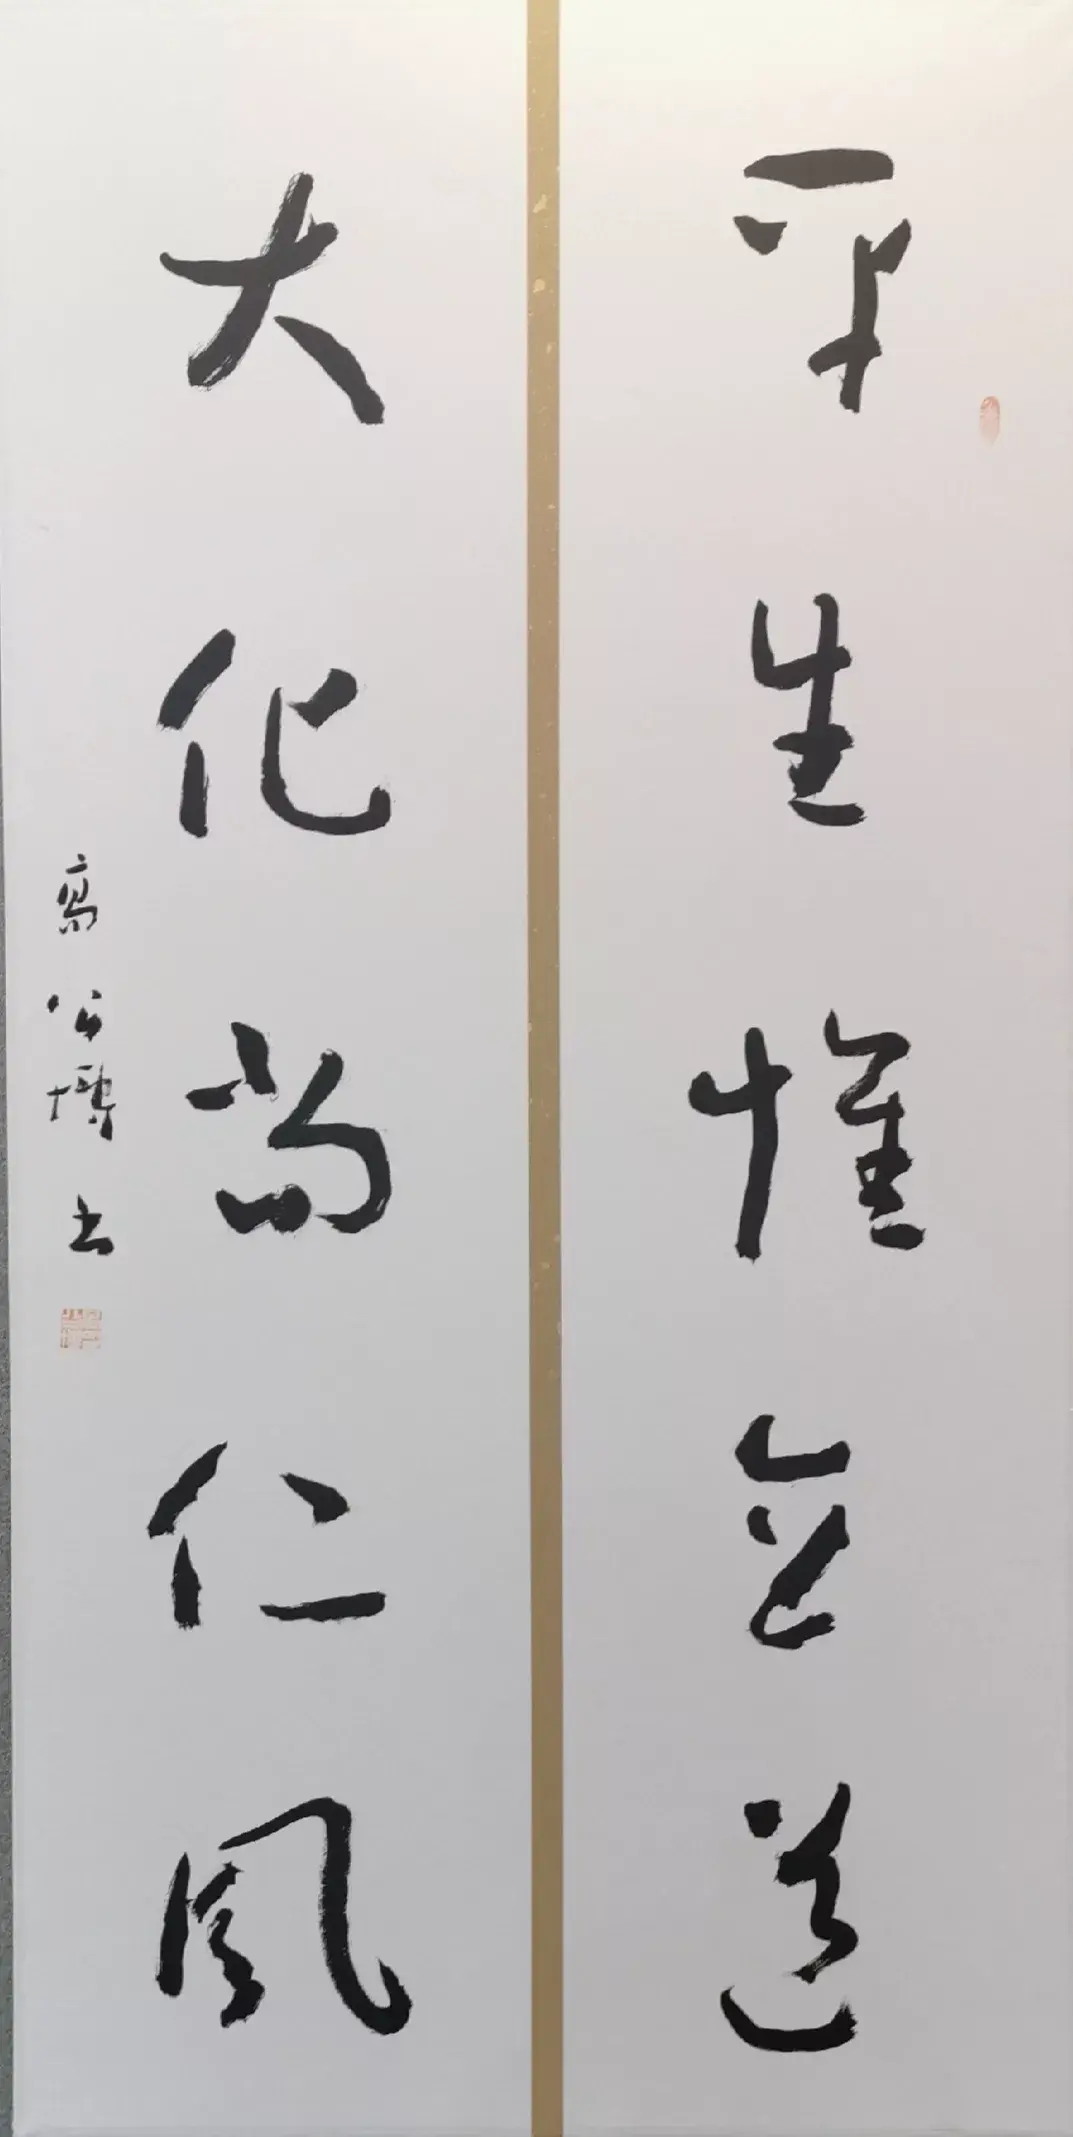 平生惟立道
大化尚仁风
高公博书